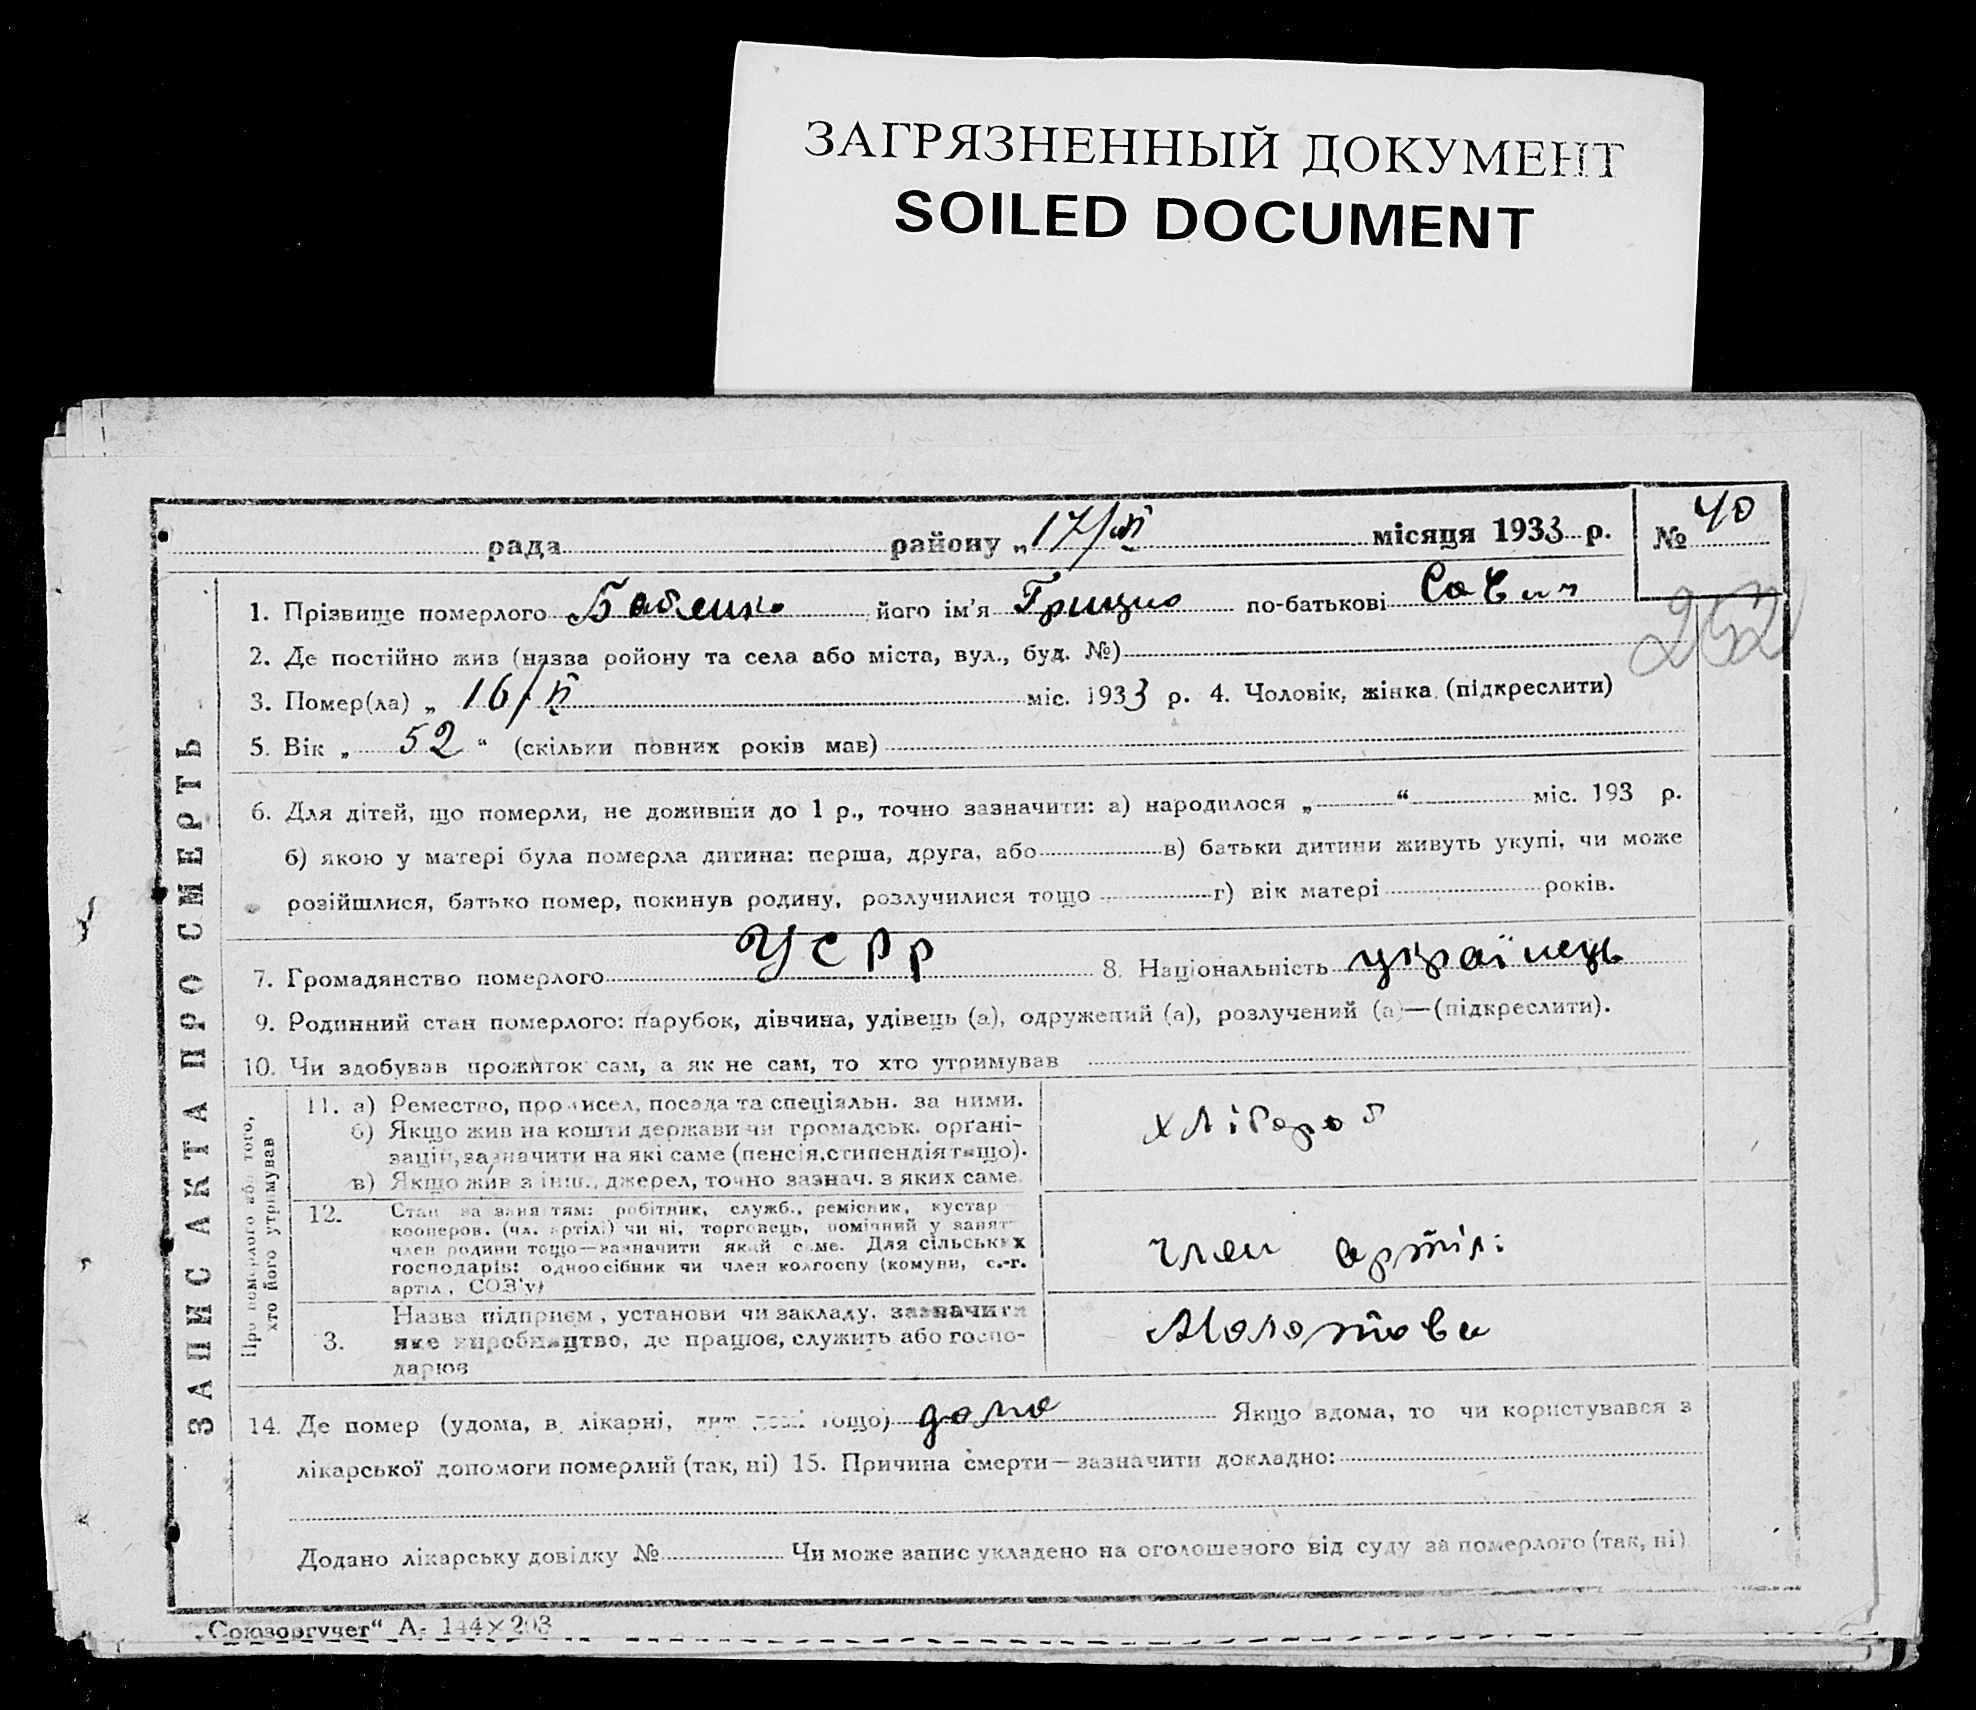 ЗАГРЯЗНЕННЫЙ ДОКУМЕНТ
SOILED DOCUMENT
рада району „17/VI місяця 1933 р. № 40
252
ЗАПИС АКТА ПРО СМЕРТЬ
1. Прізвище померлого Бабенко його ім'я Грицко по-батькові Савич
2. Де постійно жив (назва району та села або міста, вул., буд. №)
3. Помер(ла) „ 16/VI міс. 1933 р. 4. Чоловік, жінка (підкреслити)
5. Вік „ 52 “ (скільки повних років мав)
6. Для дітей, що померли, не доживши до 1 р., точно зазначити: а) народилося „ “ міс. 193 р.
б) якою у матері була померла дитина: перша, друга, або в) батьки дитини живуть укупі, чи може
розійшлися, батько помер, покинув родину, розлучилися тощо г) вік матері років.
7. Громадянство померлого УСРР 8. Національність українець
9. Родинний стан померлого: парубок, дівчина, удівець (а), одружений (а), розлучений (а)—(підкреслити).
10. Чи здобував прожиток сам, а як не сам, то хто утримував
Про померлого або того,
хто його утримував
11. а) Ремество, промисел, посада та спеціяльн. за ними.
б) Якщо жив на кошти держави чи громадськ. органі-
зацій, зазначити на які саме (пенсія, стипендія тощо).
в) Якщо жив з інш. джерел, точно зазнач. з яких саме.
хлібороб
12. Стан за занятням: робітник, служб., ремісник, кустар
кооперов. (чл. артілі) чи ні, торговець, помічний у занят
член родини тощо—зазначити який саме. Для сільських
господарів: одноосібник чи член колгоспу (комуни, с.-г.
артіл., СОЗ'у)
член артілі
3. Назва підприєм, установи чи закладу, зазначити
яке виробництво, де працює, служить або госпо-
дарює
Молотова
14. Де помер (удома, в лікарні, дит. домі тощо) дома Якщо вдома, то чи користувався з
лікарської допомоги померлий (так, ні) 15. Причина смерти—зазначити докладно:
Додано лікарську довідку № Чи може запис укладено на оголошеного від суду за померлого (так, ні)
„Союзоргучет“ А- 144×203